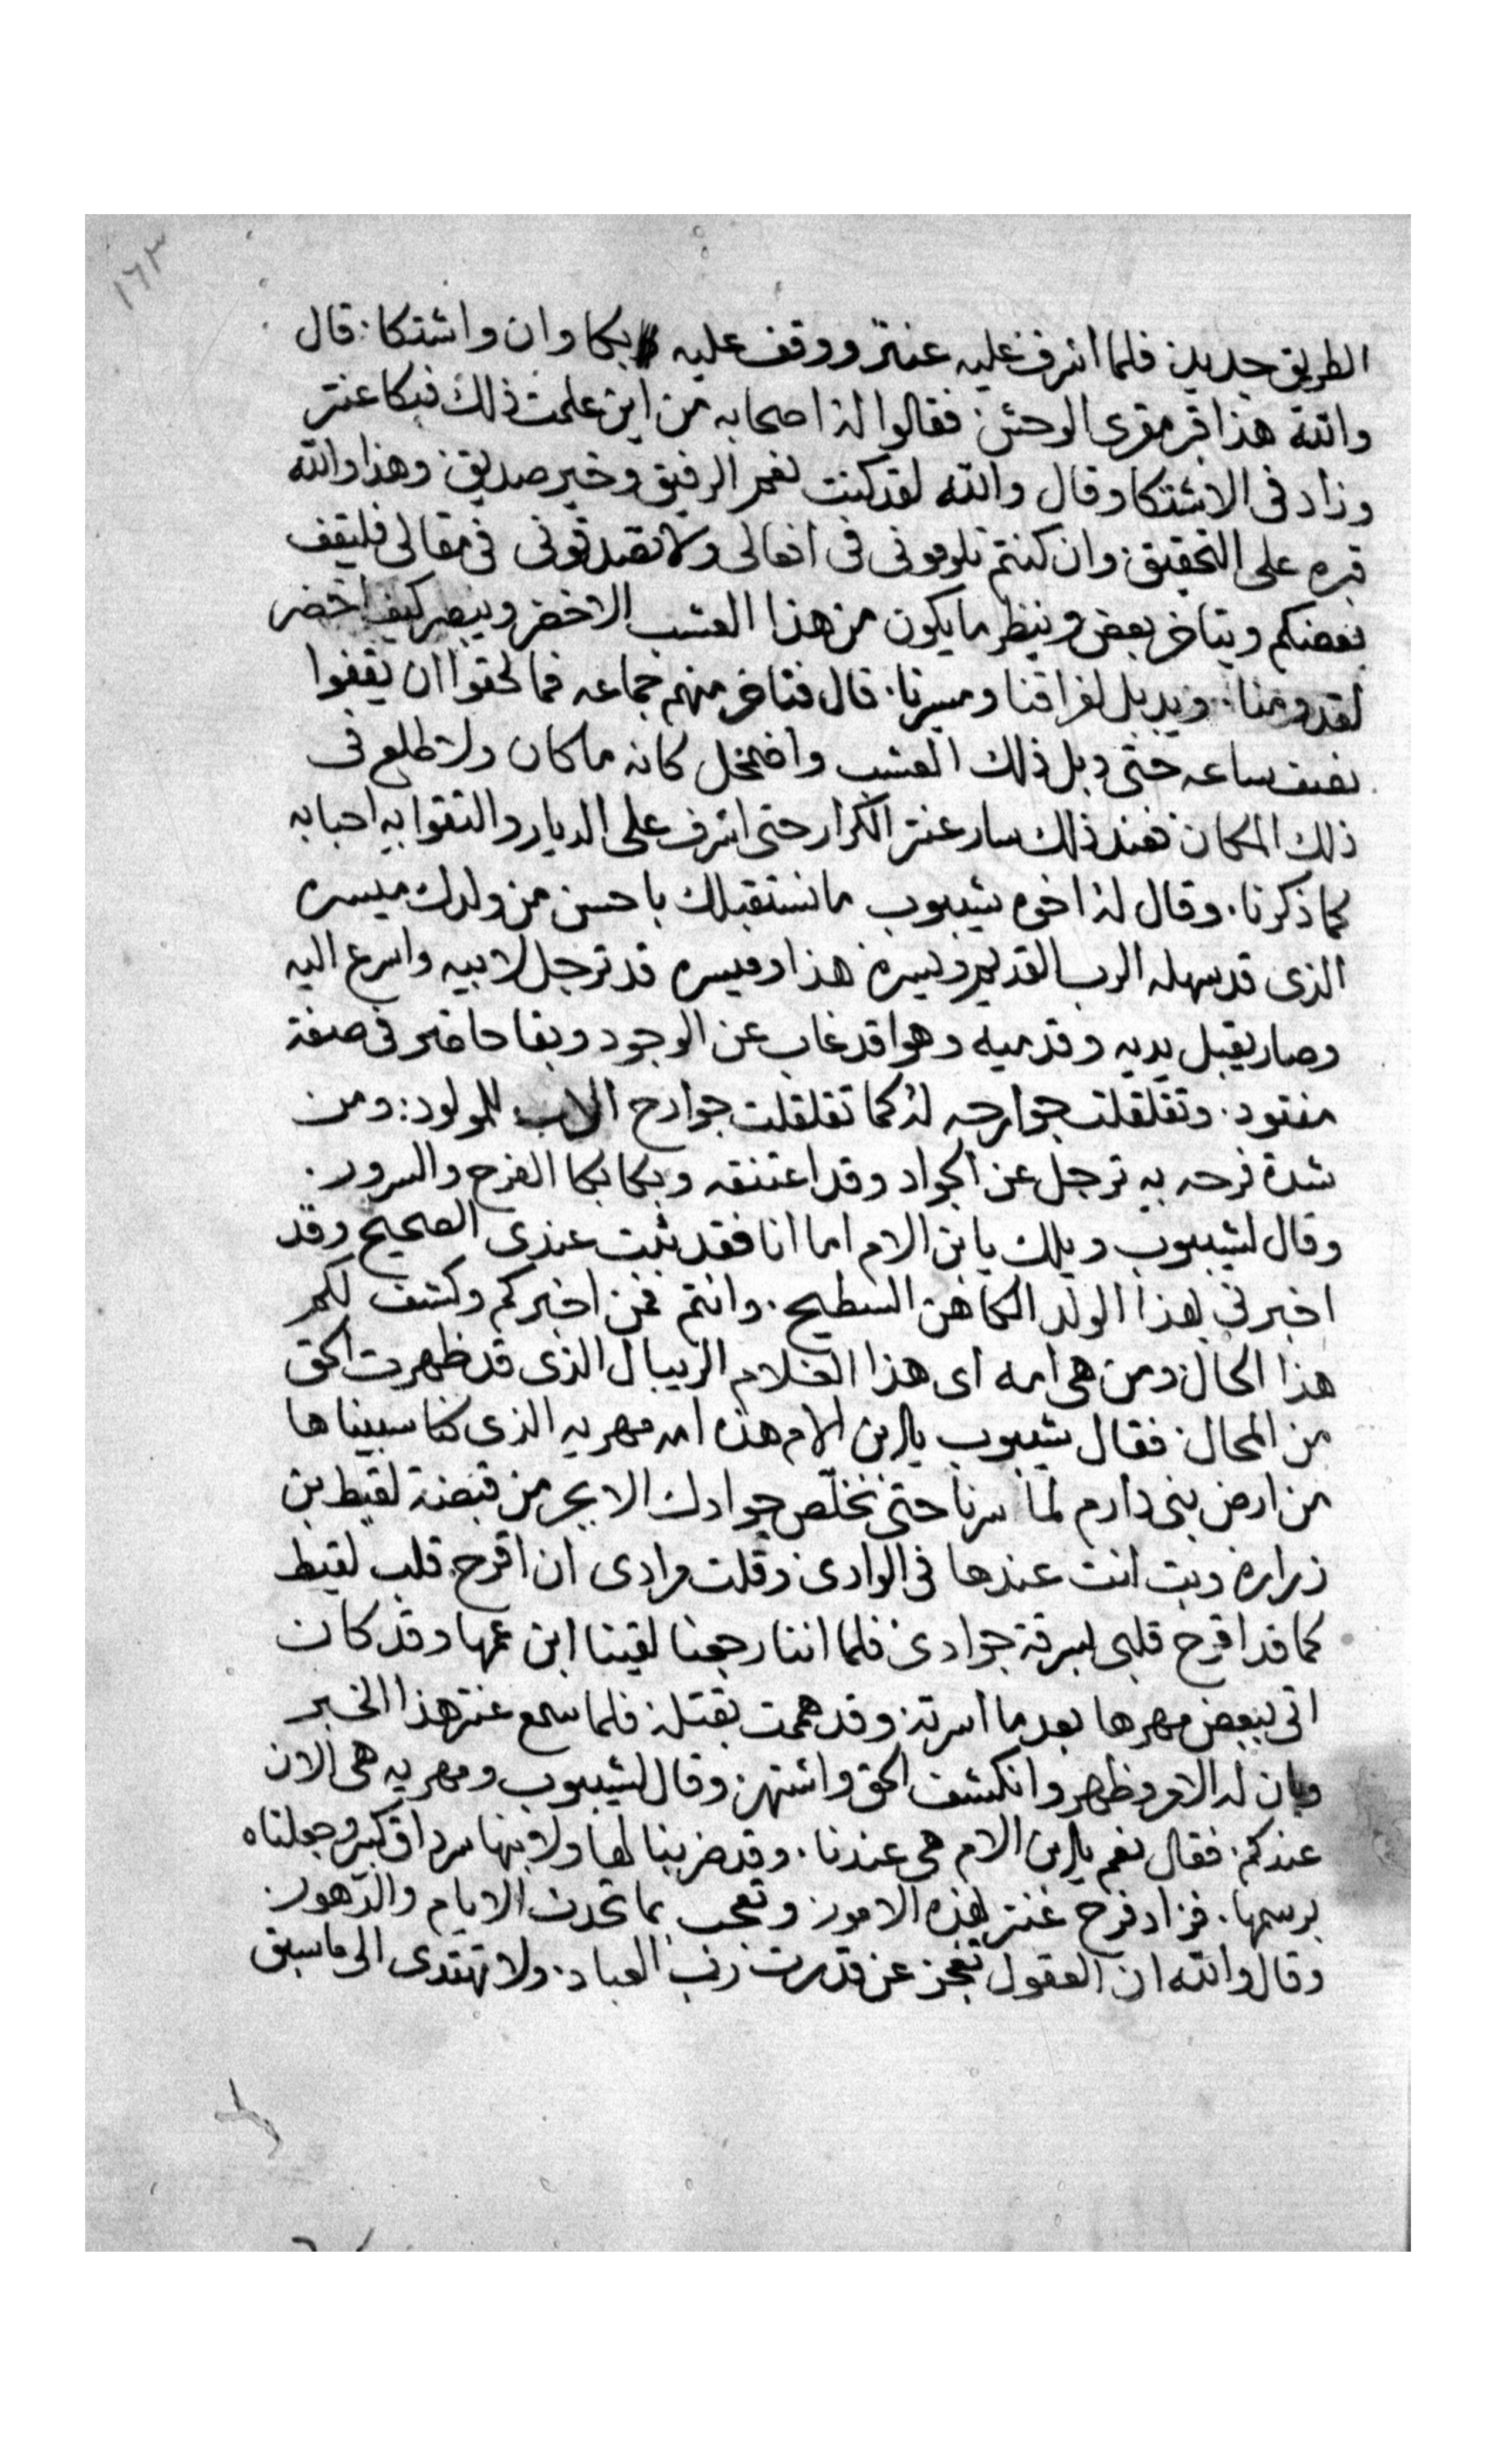 ١٦٣
الطريق جديد: فلما اشرف عليه عنتر ووقف عليه بكا وان واشتكا: قال
والله هذا قبر مقرى الوحش: فقالوا له اصحابه من اين علمت ذلك فبكا عنتر
وزاد فى الاشتكا وقال والله لقد كنت نعم الرفيق وخير صديق: وهذا والله
قبره على التحقيق: وان كنتم تلومونى فى افعالى ولا تصدقونى فى مقالى فليقف
بعضكم ويتاخر بعض وينظر ما يكون من هذا العشب الاخضر ويبصر كيف اخضر
لقدومنا: ويدبل لفراقنا ومسيرنا. قال فتاخر منهم جماعه فما لحقوا ان يقفوا
نصف ساعه حتى دبل ذلك العشب واضمحل كانه ما كان ولا طلع فى
ذلك المكان: فعند ذلك سار عنتر الكرار حتى اشرف على الديار والتقوا به احبابه
كما ذكرنا. وقال له اخوه شيبوب ما نستقبلك باحسن من ولدك ميسره
الذى قد سهله الرب القديم ويسره: هذا وميسره قد ترجل لابيه واسرع اليه
وصار يقبل يديه وقدميه وهوا قد غاب عن الوجود وبقا حاضر فى صفة
مفقود. وتقلقلت جوارحه له كما تقلقلت جوارح الاب للمولود: ومن
شدة فرحه به ترجل عن الجواد وقد اعتنقه وبكا بكا الفرح والسرور.
وقال لشيبوب ويلك يا بن الام اما انا فقد ثبت عندى الصحيح وقد
اخبرنى بهذا الولد الكاهن السطيح. وانتم فمن اخبركم وكشف لكم
هذا الحال: ومن هى امه اى هذا الغلام الريبال الذى قد ظهرت الحق
من المحال: فقال شيبوب يا بن الام هذه امه مهريه الذى كنا سبيناها
من ارض بنى دارم لما سرنا حتى نخلّص جوادك الابجر من قبضة لقيط بن
زراره وبت انت عندها فى الوادى: وقلت مرادى ان اقرح قلب لقيط
كما قد اقرح قلبى بسرقة جوادى: فلما اننا رجعنا لقينا ابن عمها وقد كان
اتى ببعض مهرها بعد ما اسرته: وقد هممت بقتله: فلما سمع عنتر هذا الخبر
وبان له الامر وظهر وانكشف الحق واشتهر: وقال لشيبوب ومهريه هى الان
عندكم: فقال نعم يا بن الام هى عندنا. وقد ضربنا لها ولابنها سرداق كبير وجعلناه
برسمها. فزاد فرح عنتر بهذه الامور: وتعجب بما تحدث الايام والدّهور.
وقال والله ان العقول تعجز عن قدرت رب العباد: ولا تهتدى الى ما سبق